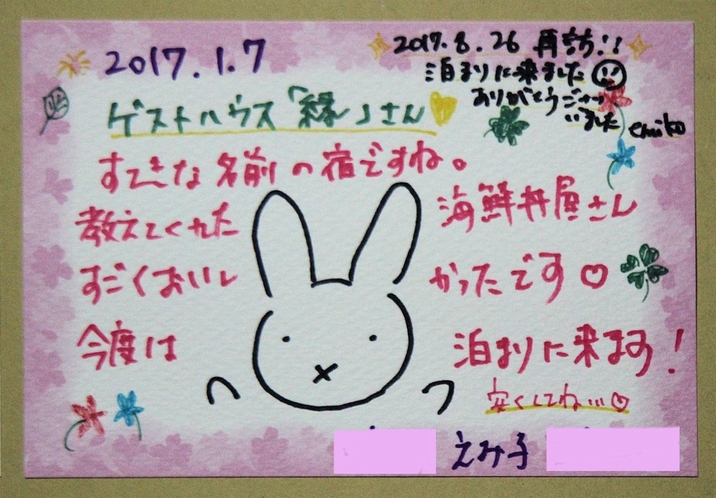 2017.1.7
2017.8.26 再訪!!
泊まりに来ました
ありがとうござ
いました
emiko
ゲストハウス「縁」さん
すてきな名前の宿ですね。
教えてくれた 海鮮丼屋さん
すごくおいし かったです♡
今度は 泊まりに来ます!
安くしてね…♡
えみ子